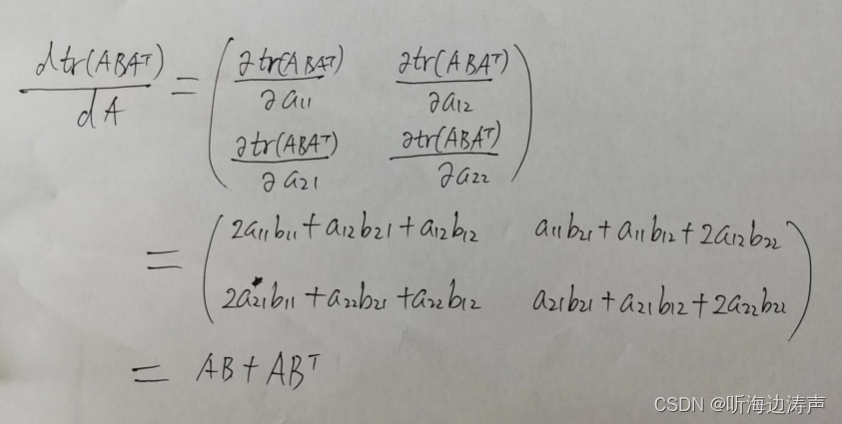 dtr(ABAᵀ)/dA = ( ∂tr(ABAᵀ)/∂a₁₁ ∂tr(ABAᵀ)/∂a₁₂
∂tr(ABAᵀ)/∂a₂₁ ∂tr(ABAᵀ)/∂a₂₂ )
= ( 2a₁₁b₁₁+a₁₂b₂₁+a₁₂b₁₂ a₁₁b₂₁+a₁₁b₁₂+2a₁₂b₂₂
2a₂₁b₁₁+a₂₂b₂₁+a₂₂b₁₂ a₂₁b₂₁+a₂₁b₁₂+2a₂₂b₂₂ )
= AB+ABᵀ
CSDN @听海边涛声